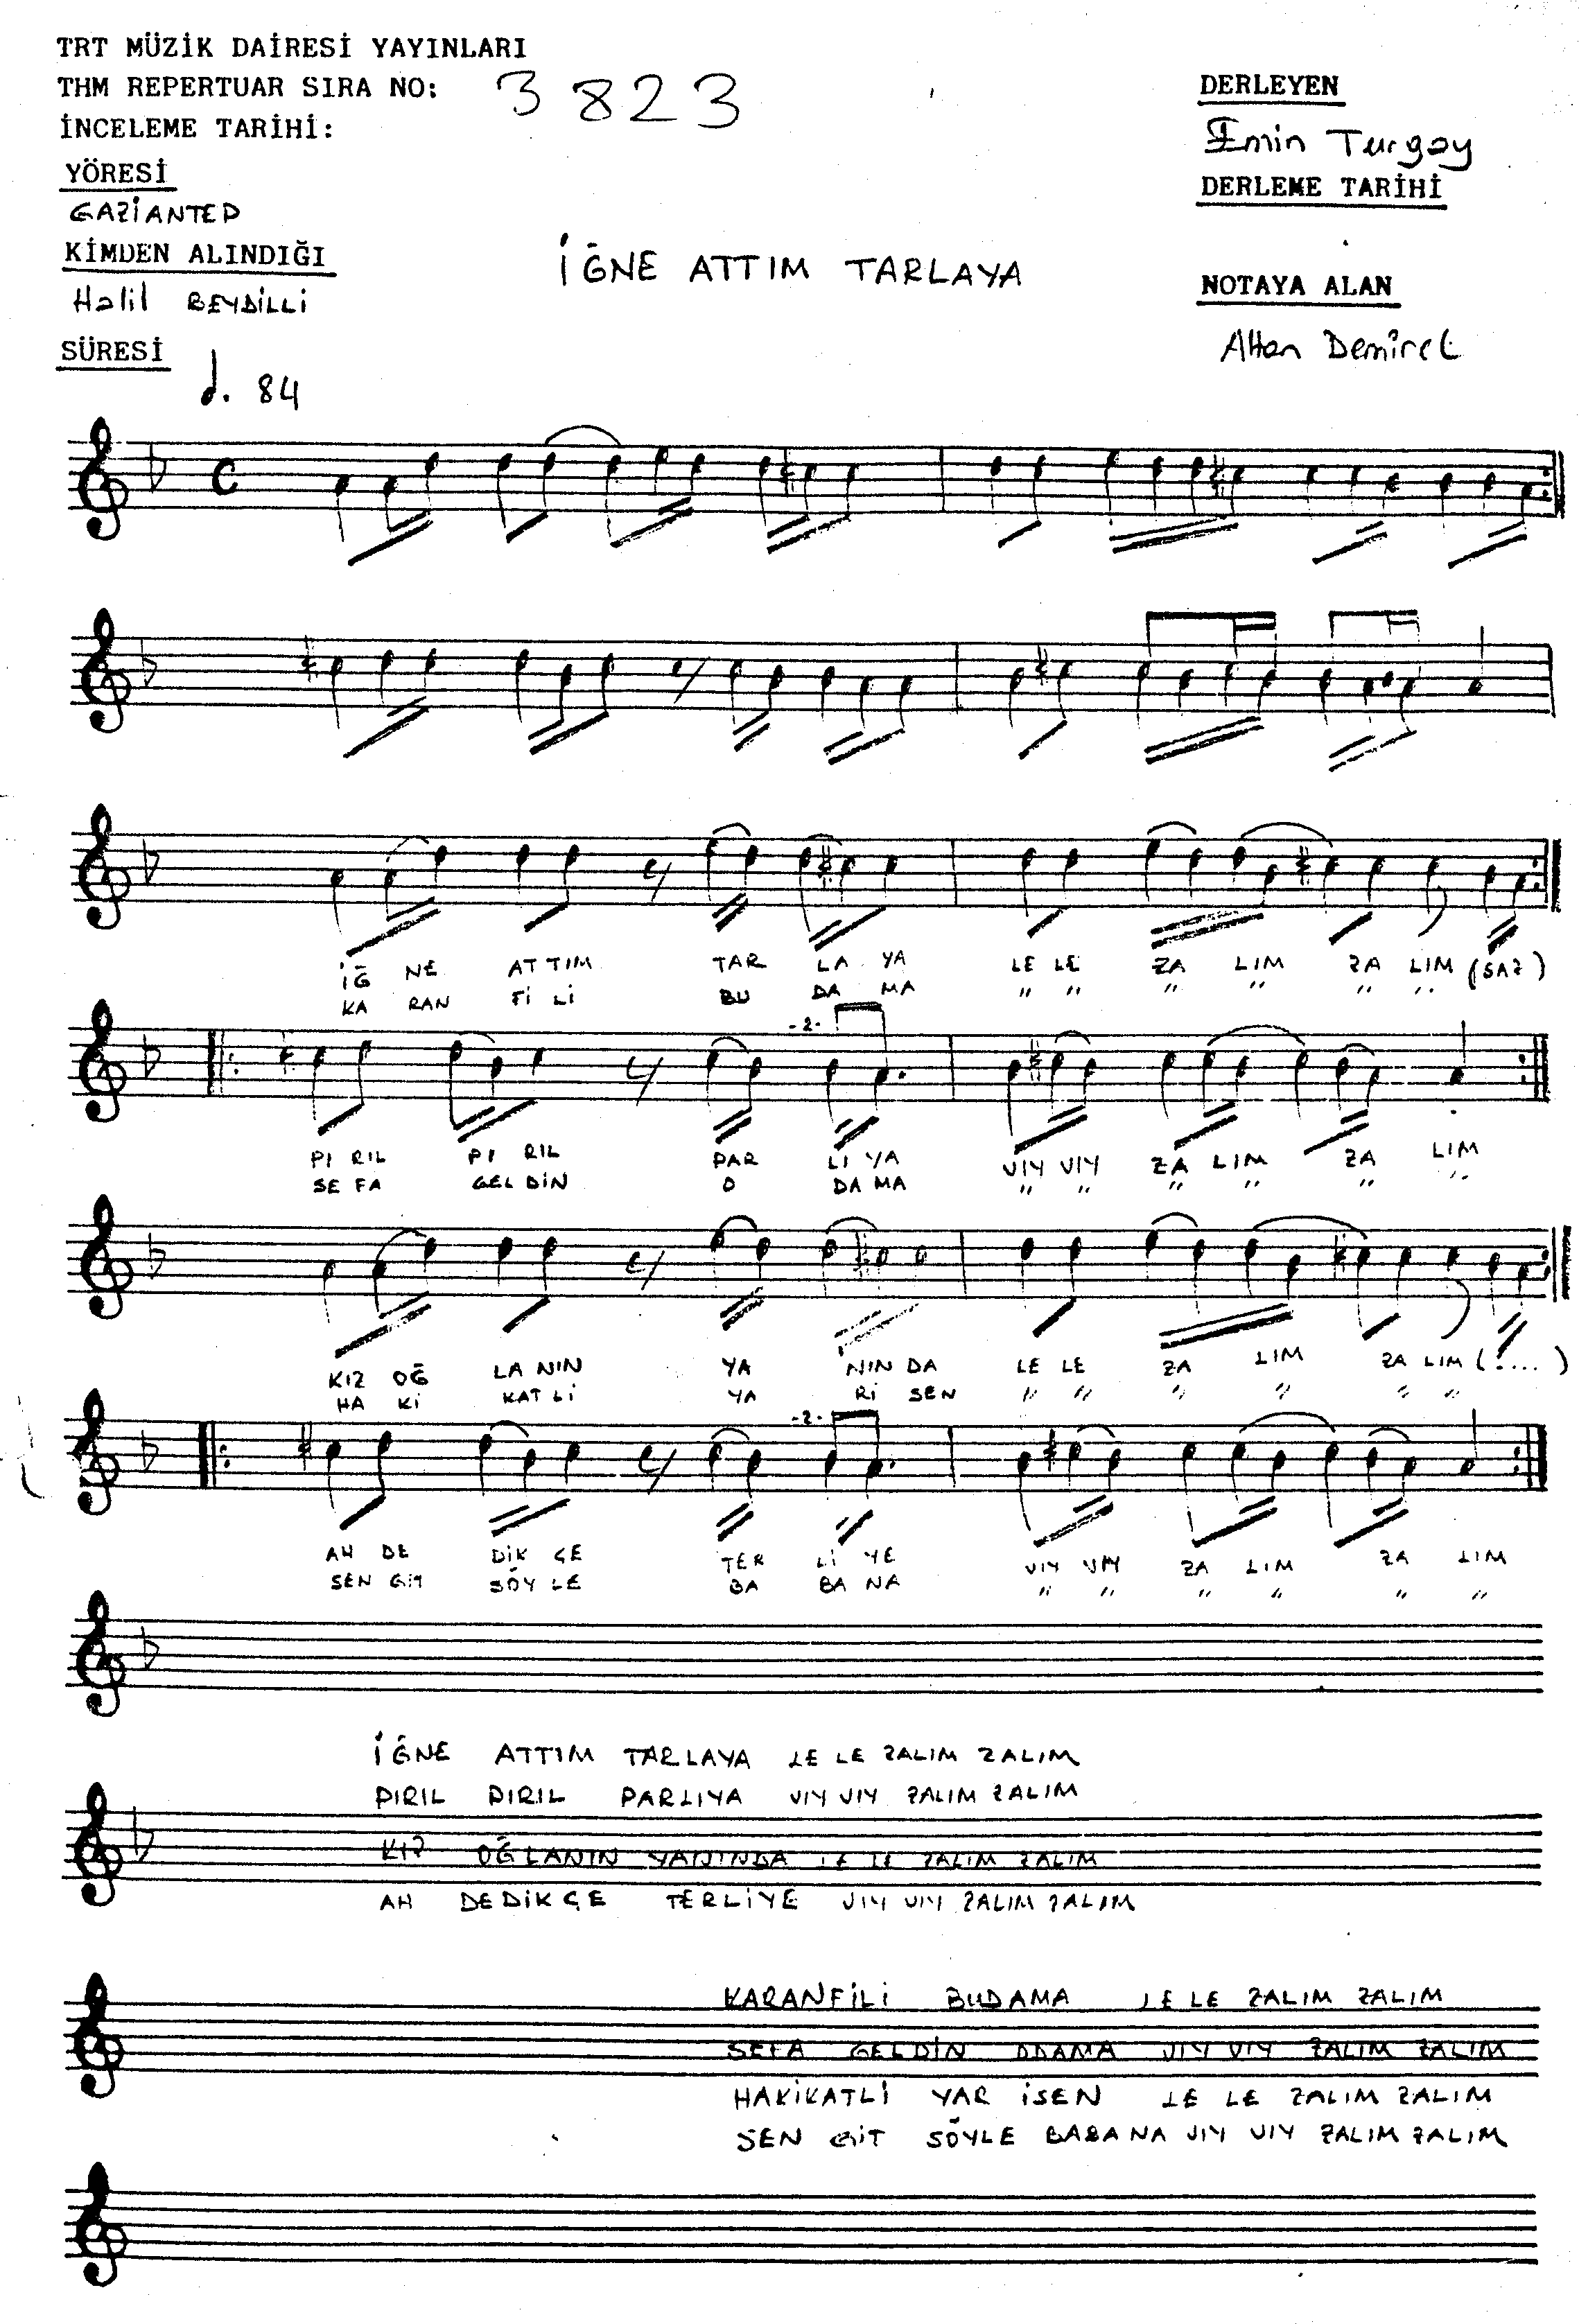 TRT MÜZİK DAİRESİ YAYINLARI
THM REPERTUAR SIRA NO: 3823
İNCELEME TARİHİ:
YÖRESİ
GAZİANTEP
KİMDEN ALINDIĞI
Halil BEYDİLLİ
SÜRESİ
84
DERLEYEN
Emin Turgay
DERLEME TARİHİ
NOTAYA ALAN
Altan Demirel
İĞNE ATTIM TARLAYA
C
İĞ NE AT TIM TAR LA YA LE LE ZA LIM ZA LIM (SAZ)
KA RAN Fİ Lİ BU DA MA " " " " " "
-2-
PI RIL PI RIL PAR LI YA VIY VIY ZA LIM ZA LIM
SE FA GEL DİN O DA MA " " " " " "
KIZ OĞ LA NIN YA NIN DA LE LE ZA LIM ZA LIM (....)
HA Kİ KAT Lİ YA Rİ SEN " " " " " "
-2-
AH DE DİK ÇE TER Lİ YE VIY VIY ZA LIM ZA LIM
SEN GİT SÖY LE BA BA NA " " " " " "
İĞNE ATTIM TARLAYA LE LE ZALIM ZALIM
PIRIL PIRIL PARLIYA VIY VIY ZALIM ZALIM
KIZ OĞLANIN YANINDA LE LE ZALIM ZALIM
AH DEDİKÇE TERLİYE VIY VIY ZALIM ZALIM
KARANFİLİ BUDAMA LE LE ZALIM ZALIM
SEFA GELDİN ODAMA VIY VIY ZALIM ZALIM
HAKİKATLİ YAR İSEN LE LE ZALIM ZALIM
SEN GİT SÖYLE BABANA VIY VIY ZALIM ZALIM